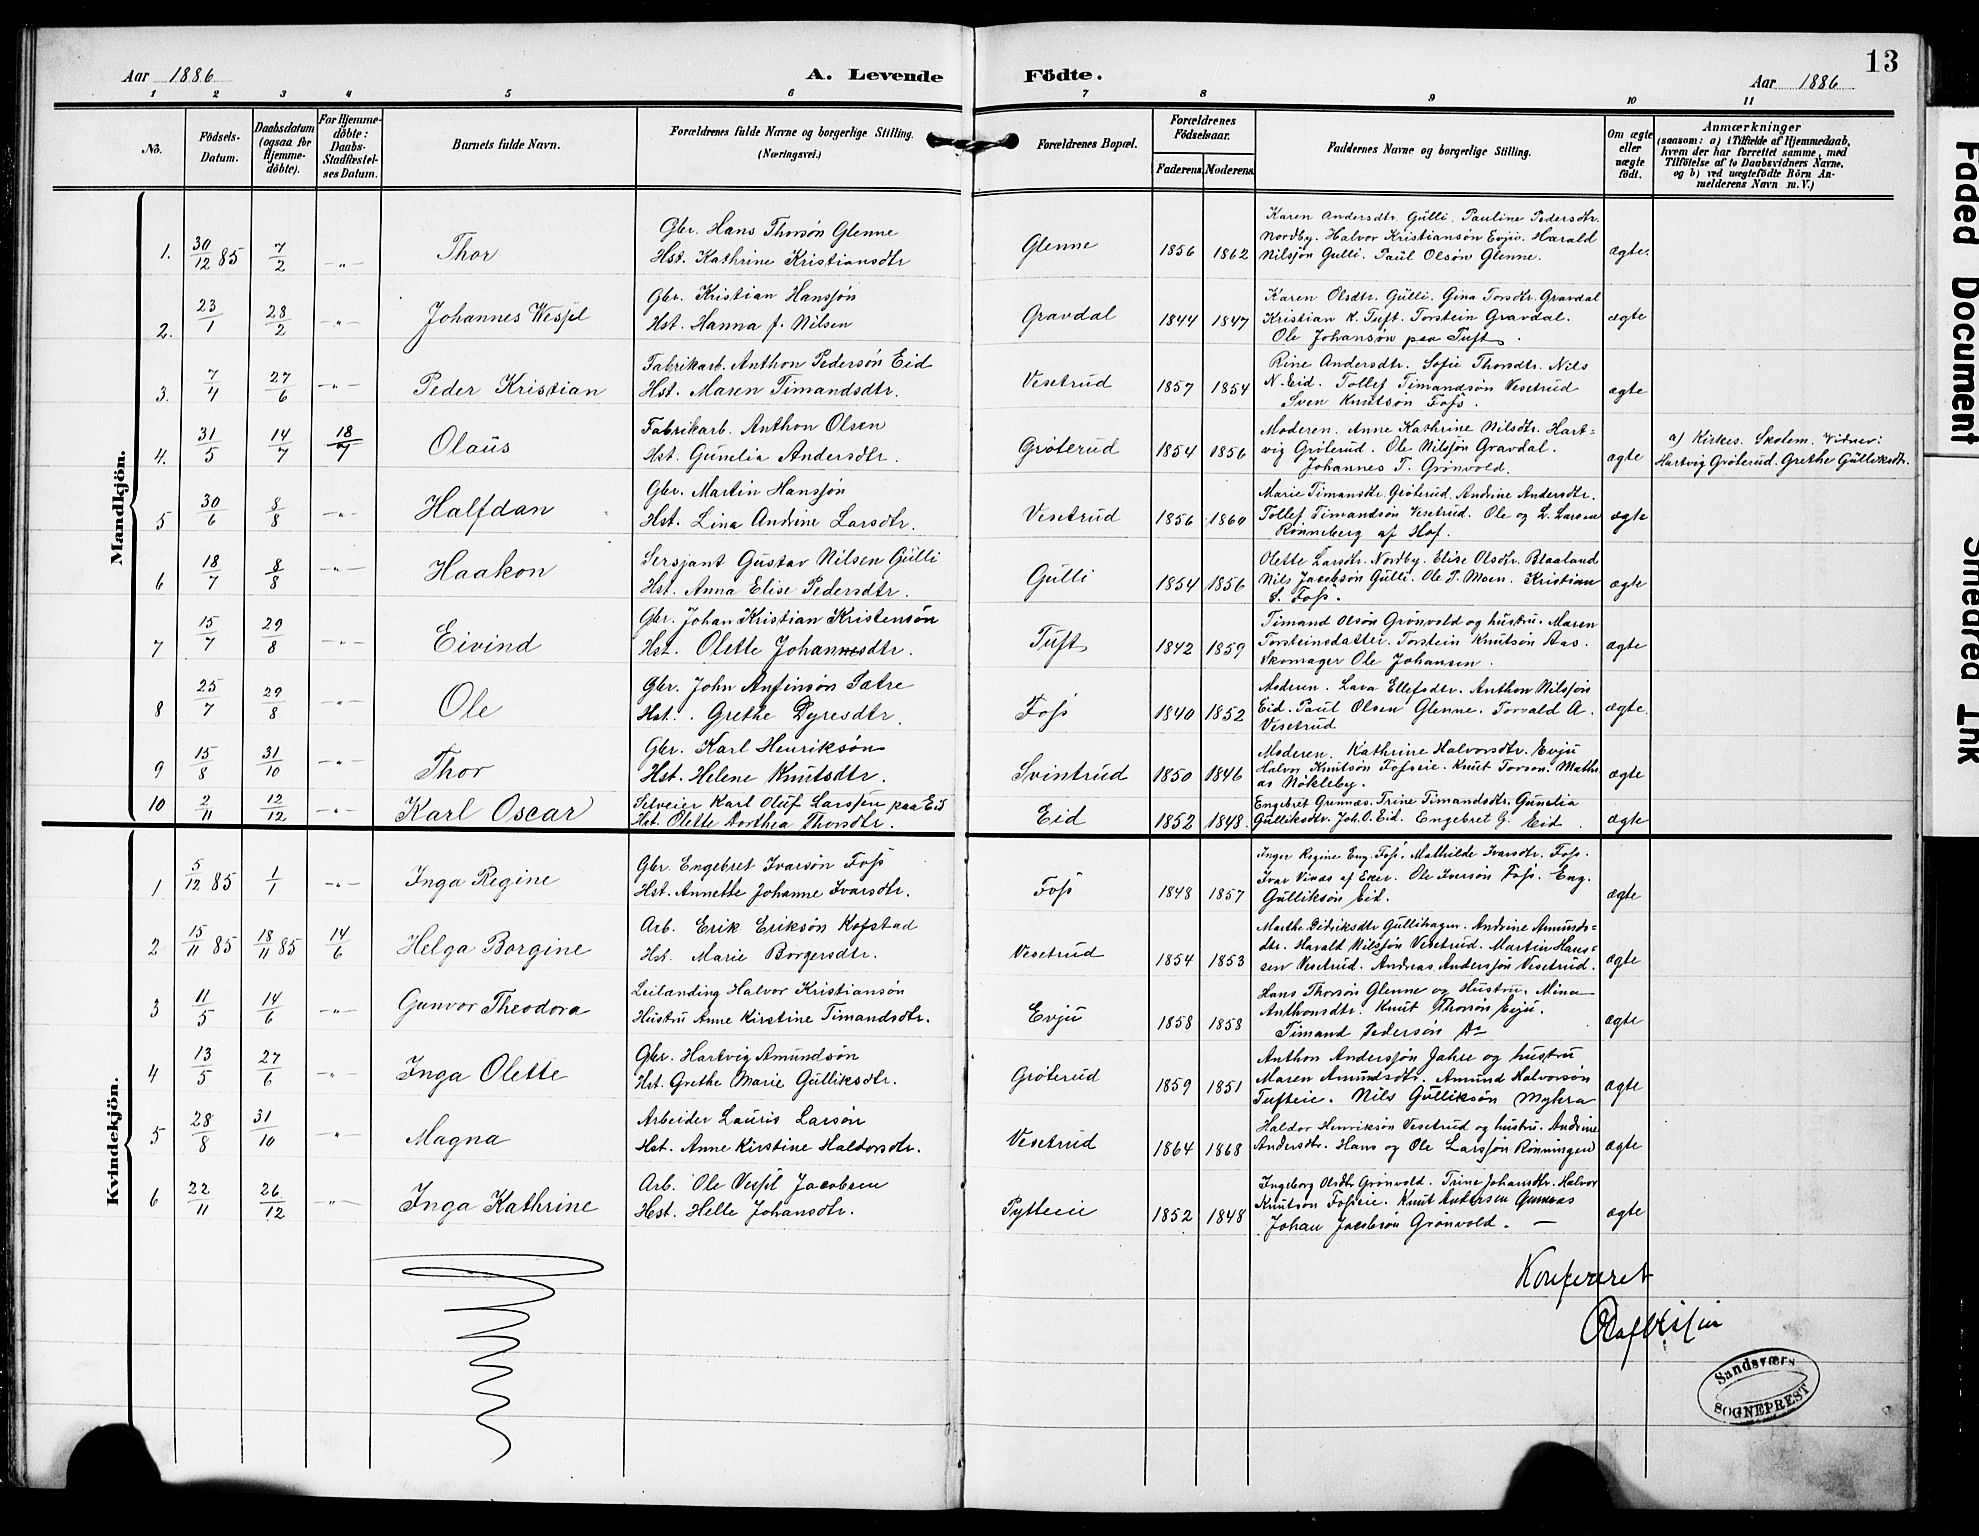 Aar 1886
A. Levende Födte.
Aar 1886
13
1 2 3 4 5 6 7 8 9 10 11
No.
Födsels-Datum.
Daabsdatum (ogsaa for Hjemmedöbte).
For Hjemmedöbte: Daabs-Stadfæstelses Datum.
Barnets fulde Navn.
Forældrenes fulde Navne og borgerlige Stilling.
(Næringsvei.)
Forældrenes Bopæl.
Forældrenes Födselsaar.
Faderens. Moderens.
Faddernes Navne og borgerlige Stilling.
Om ægte eller uægte födt.
Anmærkninger
(saasom: a) i Tilfælde af Hjemmedaab, hvem der har forrettet samme, med Tilföielse af to Daabsvidners Navne, og b) ved uægtefödte Börn Anmelderens Navn m. V.)
Mandkjön.
1. 30/12 85 7/2 -„- Thor
Gbr. Hans Thorsøn Glenne
Hst. Kathrine Kristiansdtr
Glenne 1856 1862
Karen Andersdtr. Gulli. Pauline Pedersdtr.
Nordby. Halvor Kristiansøn Evju. Harald
Nilsjøn Gulli. Paul Olsøn Glenne.
ægte.
2. 23/1 28/2 -„- Johannes Wessel
Gbr. Kristian Hansjøn
Hst. Hanna f. Nilsen
Gravdal 1844 1847
Karen Olsdtr. Gulli. Gina Torsdtr. Gravdal
Kristian K. Tuft. Torstein Gravdal.
Ole Johansøn paa Tuft.
ægte
3. 7/4 27/6 -„- Peder Kristian
Fabrikarb. Anthon Pedersøn Eid
Hst. Maren Timandsdtr.
Vesetrud 1857 1854
Rine Andersdtr. Sofie Thorsdtr. Nils
N. Eid. Tollef Timandsøn Vesetrud
Sven Knutsøn Foss.
ægte
4. 31/5 14/7 18/7 Olaus
Fabrikarb. Anthon Olsen
Hst. Gunelia Andersdtr.
Grøterud 1854 1856
Moderen. Anne Kathrine Nilsdtr. Hart-
vig Grøterud. Ole Nilsjøn Gravdal.
Johannes T. Grønvold.
ægte
a) Kirkes. Skolem. Vidner:
Hartvig Grøterud. Grethe Gulliksdtr.
5 30/6 8/8 -„- Halfdan
Gbr. Martin Hansjøn
Hst. Lina Andrine Larsdtr.
Vesetrud 1856 1860
Marie Timansdtr. Grøterud. Andrine Andersdtr.
Tollef Timandsøn Vesetrud. Ole og L. Larsen
Rønneberg af Hof.
ægte
6 18/7 8/8 -„- Haakon
Sersjant Gustav Nilsen Gulli
Hst. Anna Elise Pedersdtr.
Gulli 1854 1856
Olette Larsdtr. Nordby. Elise Olsdtr. Blaaland
Nils Jacobsøn Gulli. Ole P. Moen. Kristian
S. Foss.
ægte
7 15/7 29/8 -„- Eivind
Gbr. Johan Kristian Kristensøn
Hst. Olette Johannesdtr.
Tuft 1842 1859
Timand Olsøn Grønvold og hustru. Maren
Torsteinsdatter. Torstein Knutsøn Aas.
Skomager Ole Johansen.
ægte
8 25/7 29/8 -„- Ole
Gbr. John Anfinsøn Sætre
Hst. Grethe Dyresdtr.
Foss 1840 1852
Moderen. Lava Ellefsdtr. Anthon Nilsjøn
Eid. Paul Olsen Glenne. Torvald A.
Vesetrud
ægte.
9 15/8 31/10 -„- Thor
Gbr. Karl Henriksøn
Hst. Helene Knutsdtr.
Svintrud 1850 1846
Moderen. Kathrine Halvorsdtr. Evju
Halvor Knutsøn Fosseie. Knut Torson. Mathi-
as Nøkleby.
ægte
10 2/11 12/12 -„- Karl Oscar
Selveier Karl Oluf Larssen paa Eid
Hst. Olette Dorthea Thorsdtr.
Eid 1852 1848
Engebret Grennæs. Trine Timandsdtr. Gunelia
Gulliksdtr. Joh. O. Eid. Engebret G. Eid.
ægte
Kvindekjön.
1 5/12 85 1/1 -„- Inga Regine
Gbr. Engebret Ivarsøn Foss
Hst. Annette Johanne Ivarsdtr.
Foss 1848 1857
Inger Regine Eng. Foss. Mathilde Ivarsdtr. Foss.
Ivar Vinæs af Eker. Ole Iversøn Foss. Eng.
Gulliksøn Eid.
ægte
2 15/11 85 18/11 85 14/6 Helga Borgine
Arb. Erik Eriksøn Kofstad
Hst. Marie Borgersdtr.
Vesetrud 1854 1853
Marthe Didriksdtr Gullihagen. Andrine Amunds-
dtr. Harald Nilsjøn Vesetrud. Martin Hans-
sen Vesetrud. Andreas Andersjøn Vesetrud.
ægte
3 11/5 14/6 -„- Gunvor Theodora
Leilænding Halvor Kristiansøn
Hustru Anne Kirstine Timandsdtr.
Evju 1858 1858
Hans Thorsøn Glenne og Hustru. Mina
Anthonsdtr. Knut Thorsøn Evju.
Timand Pedersøn Ds
ægte
4 13/5 27/6 -„- Inga Olette
Gbr. Hartvig Amundsøn
Hst. Grethe Marie Gulliksdtr.
Grøterud 1859 1851
Anthon Andersjøn Jahre og hustru
Maren Amundsdtr. Amund Halvorsøn
Tufteie. Nils Gulliksøn Myhra
ægte
5 28/8 31/10 -„- Magna
Arbeider Lauris Larsøn
Hst. Anne Kirstine Haldorsdtr.
Vesetrud 1864 1868
Haldor Henriksøn Vesetrud og hustru. Andrine
Andersdtr. Hans og Ole Larssøn Rønningen
ægte
6 22/11 26/12 -„- Inga Kathrine
Arb. Ole Vessel Jacobsen
Hst. Helle Johansdtr.
Pytteie 1852 1848
Ingeborg Olsdtr Grønvold. Trine Johansdtr. Halvor
Knutsøn Fosseie. Knut Andersen
Johan Jacobsøn Grønvold. —
ægte
Konfereret
Sandsværs
SOGNEPREST
Faded Document
Smeared Ink